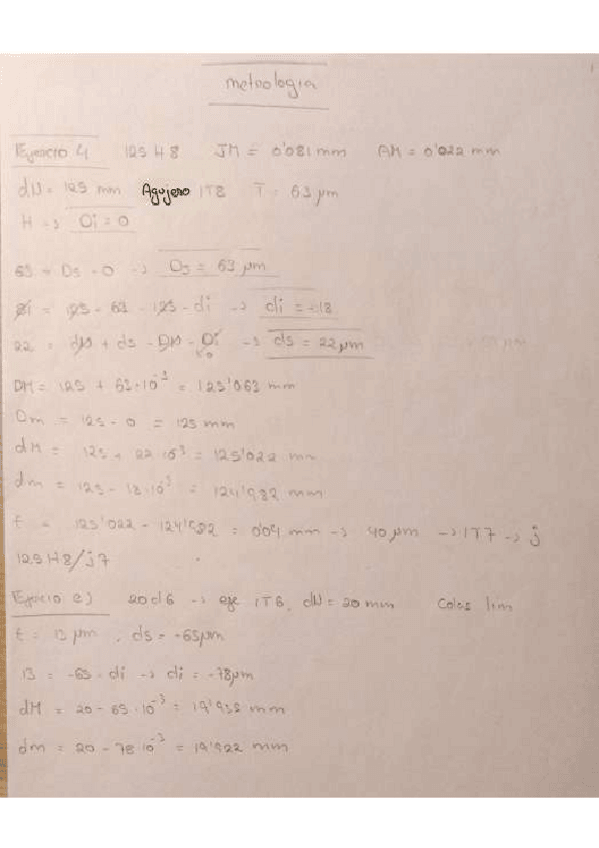 metrología
Ejercicio 4 125 H8 JM = 0'081 mm AM = 0'022 mm
dN = 125 mm Agujero IT8 T = 63 µm
H -> Di = 0
63 = Ds - 0 -> Ds = 63 µm
81 = 125 + 63 - 125 - di -> di = -18
22 = dN + ds - DN - Di -> ds = 22 µm
DM = 125 + 63·10⁻³ = 125'063 mm
Dm = 125 - 0 = 125 mm
dM = 125 + 22·10⁻³ = 125'022 mm
dm = 125 - 18·10⁻³ = 124'982 mm
t = 125'022 - 124'982 = 0'04 mm -> 40 µm -> IT7 -> j
125 H8/j7
20 d6 -> eje IT6, dN = 20 mm Cotas lim
t = 13 µm, ds = -65 µm
13 = -65 - di -> di = -78 µm
dM = 20 - 65·10⁻³ = 19'935 mm
dm = 20 - 78·10⁻³ = 19'922 mm